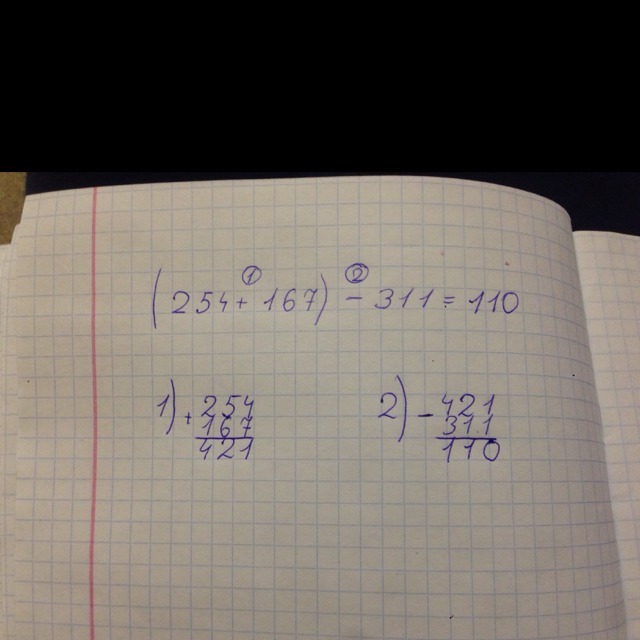 ① ②
(254+167) - 311 = 110
1) + 254
167
421
2) - 421
311
110